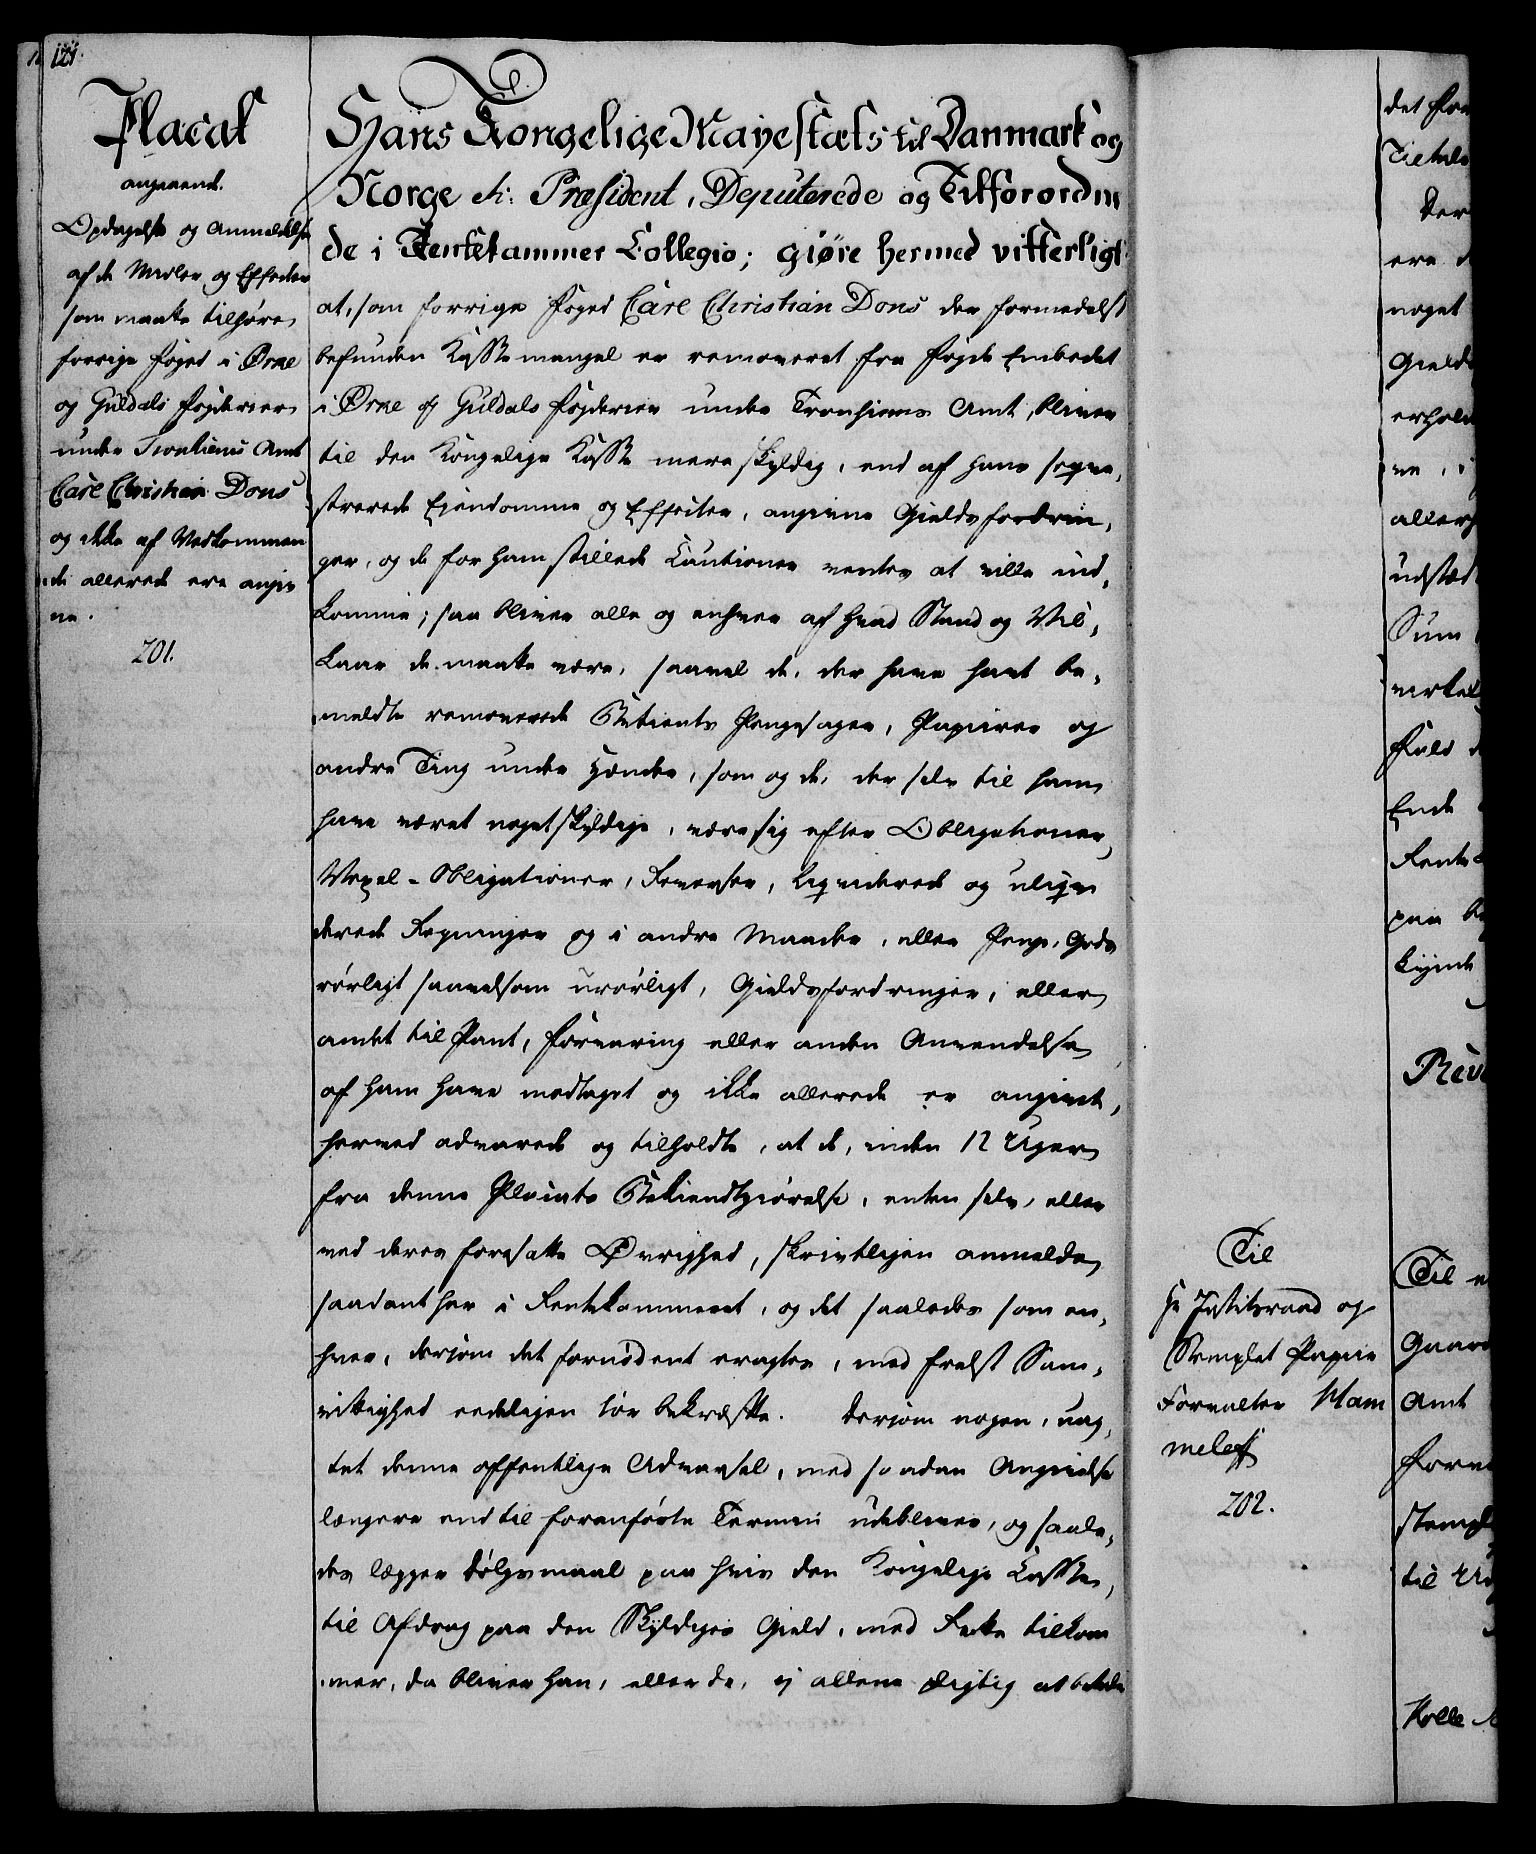 121.
Placat
angaaende
Opdagelse og Anmeldelse
af de Midler og Effecter
som maatte tilhøre
forrige Foged i Ørke
og Guldals Fogderier
under Tronhiems Amt
Carl Christian Dons
og ikke af Vedkommen
de allerede ere angiv
ne.
201.
Hans Kongelige Mayestæts til Danmark og
Norge &c: Præsident, Deputerede og Tilforordne
de i Rentekammer Collegio; giøre hermed vitterligt:
at, som forrige Foged Carl Christian Dons der formedelst
befunden Kassemangel er removeret fra Fogde Embedet
i Ørke og Guldals Fogderier under Tronhiems Amt, bliver
til den Kongelige Kasse mere skyldig, end af hans seqve,
strerede Ejendomme og Effecter, angivne Gieldsfordrin,
ger, og de for ham stillede Cautioner ventes at ville ind,
komme; saa bliver alle og enhver af hvad Stand og Vil,
kaar de maatte være, saavel de, der have havt be,
meldte removerede Betients Pengesager, Papirer og
andre Ting under Hænder, som og de, der selv til ham
have været noget skyldige, være sig efter Obligationer,
Vexel-Obligationer, Reverser, liqviderede og uliqvi
derede Regninger og i andre Maader, eller Penge, Gods
rørligt saavelsom urørligt, Gieldsfordringer, eller
andet til Pant, Forvaring eller anden Anvendelse
af ham have modtaget og ikke allerede er angivet,
herved advarede og tilholdte, at de, inden 12 Uger
fra denne Placats Bekiendtgiørelse, enten selv, eller
ved deres foresatte Øvrighed, skriftligen anmelde
saadant her i Rentekammeret, og det saaledes som en,
hver, dersom det fornødent eragtes, med frelst Sam,
vittighed eedeligen tør bekræfte. Dersom nogen, uag,
tet denne offentlige Advarsel, med saadan Angivelse
længere end til foranførte Termin udebliver, og saale,
des lægger Dølgsmaal paa hvis den Kongelige Kasse,
til Afdrag paa den Skyldiges Gield, med Rette tilkom
mer, da bliver han, eller de, ej allene pligtig at betale
Til
Hr Justitsraad og
Stemplet Papiir
Forvalter Ham
meleff
202.
det
noget
Sum
Ende
Til
Amt